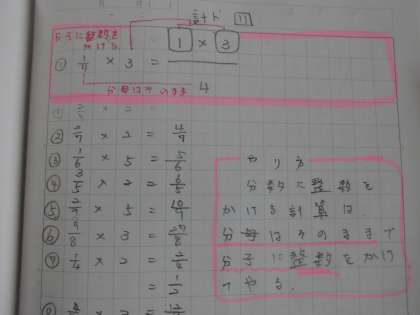 計ド 11
分子に整数を
かける
① 1/4 × 3 = 1 × 3
4
分母はそのまま
② 2/9 × 2 = 4/9
③ 1/6 × 5 = 5/6
④ 3/5 × 2 = 6/5
⑤ × 5 =
⑥ 9/8 × 3 = 27/8
⑦ 1/4 × 2 = 2/4
= 1/2
やり方
分数に整数を
かける計算は、
分母はそのままで
分子に整数をかけ
てやる。